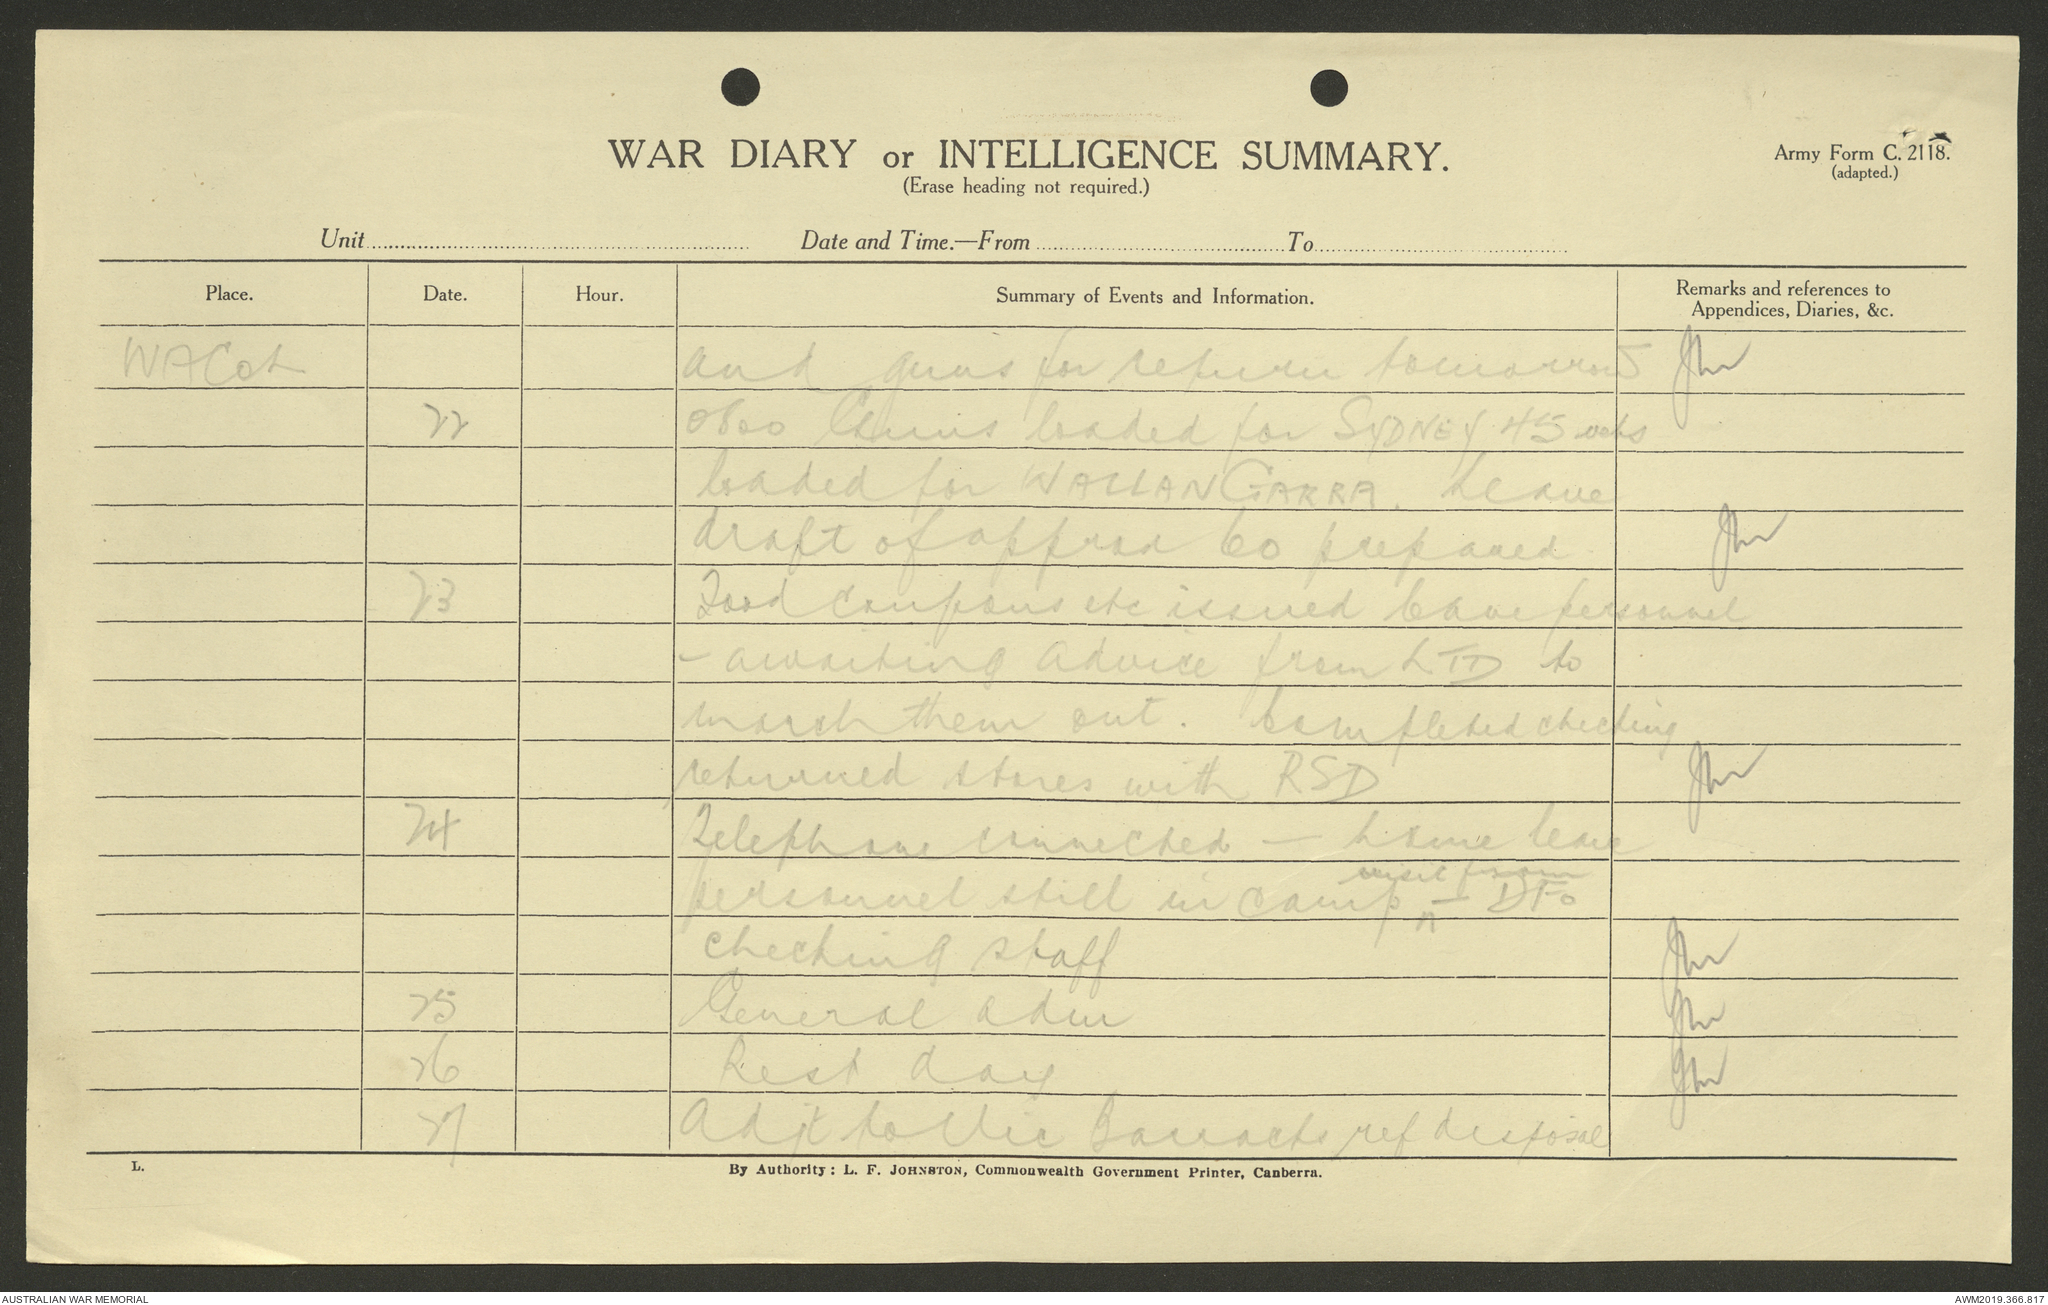 WAR DIARY or INTELLIGENCE SUMMARY.
(Erase heading not required.)
Army Form C. 2118.
(adapted.)
Unit
Date and Time.—From
To
Place.
Date.
Hour.
Summary of Events and Information.
Remarks and references to
Appendices, Diaries, &c.
WACOL
and guns for return tomorrow
22
0800 Guns loaded for SYDNEY 45 vehs
loaded for WALLANGARRA. Leave
draft of approx 60 prepared
23
Food coupons etc issued leave personnel
- awaiting advice from LTD to
march them out. Completed checking
returned stores with RSD
24
Telephone connected - home leave
personnel still in camp - visit from DFO
checking staff
25
General adm
26
Rest day
27
Adjt to Vic Barracks ref disposal
L.
By Authority: L. F. JOHNSTON, Commonwealth Government Printer, Canberra.
AUSTRALIAN WAR MEMORIAL
AWM2019.366.817